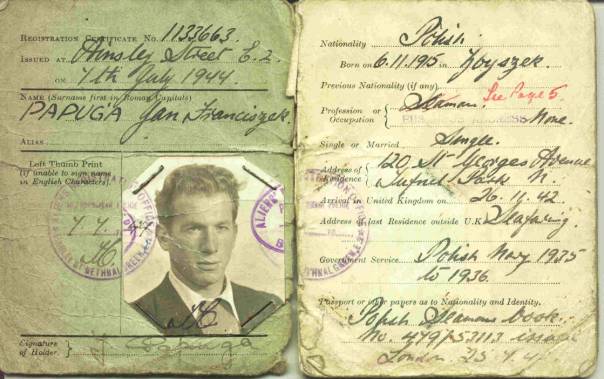 REGISTRATION CERTIFICATE No. 1133663.
ISSUED AT Ainsley Street E.2.
ON 7th July 1944.
NAME (Surname first in Roman Capitals)
PAPUGA Jan Franciszek.
ALIAS
Left Thumb Print
(if unable to sign name
in English Characters).
7. 7. 44
Signature
of Holder.
J Papuga
Nationality Polish.
Born on 6.11.1915 in Zbyszek.
Previous Nationality (if any)
Profession or
Occupation
Seaman. See Page 5.
BUSINESS ADDRESS None.
Single or Married Single.
Address of
Residence
120, St Georges Avenue
Tufnell Park N.
Arrival in United Kingdom on 26.11.42
Address of last Residence outside U.K. Seafaring.
Government Service Polish Navy 1935
to 1936.
Passport or other papers as to Nationality and Identity.
Polish Seamans book.
No. 479/53113 issued
London 25.4.4